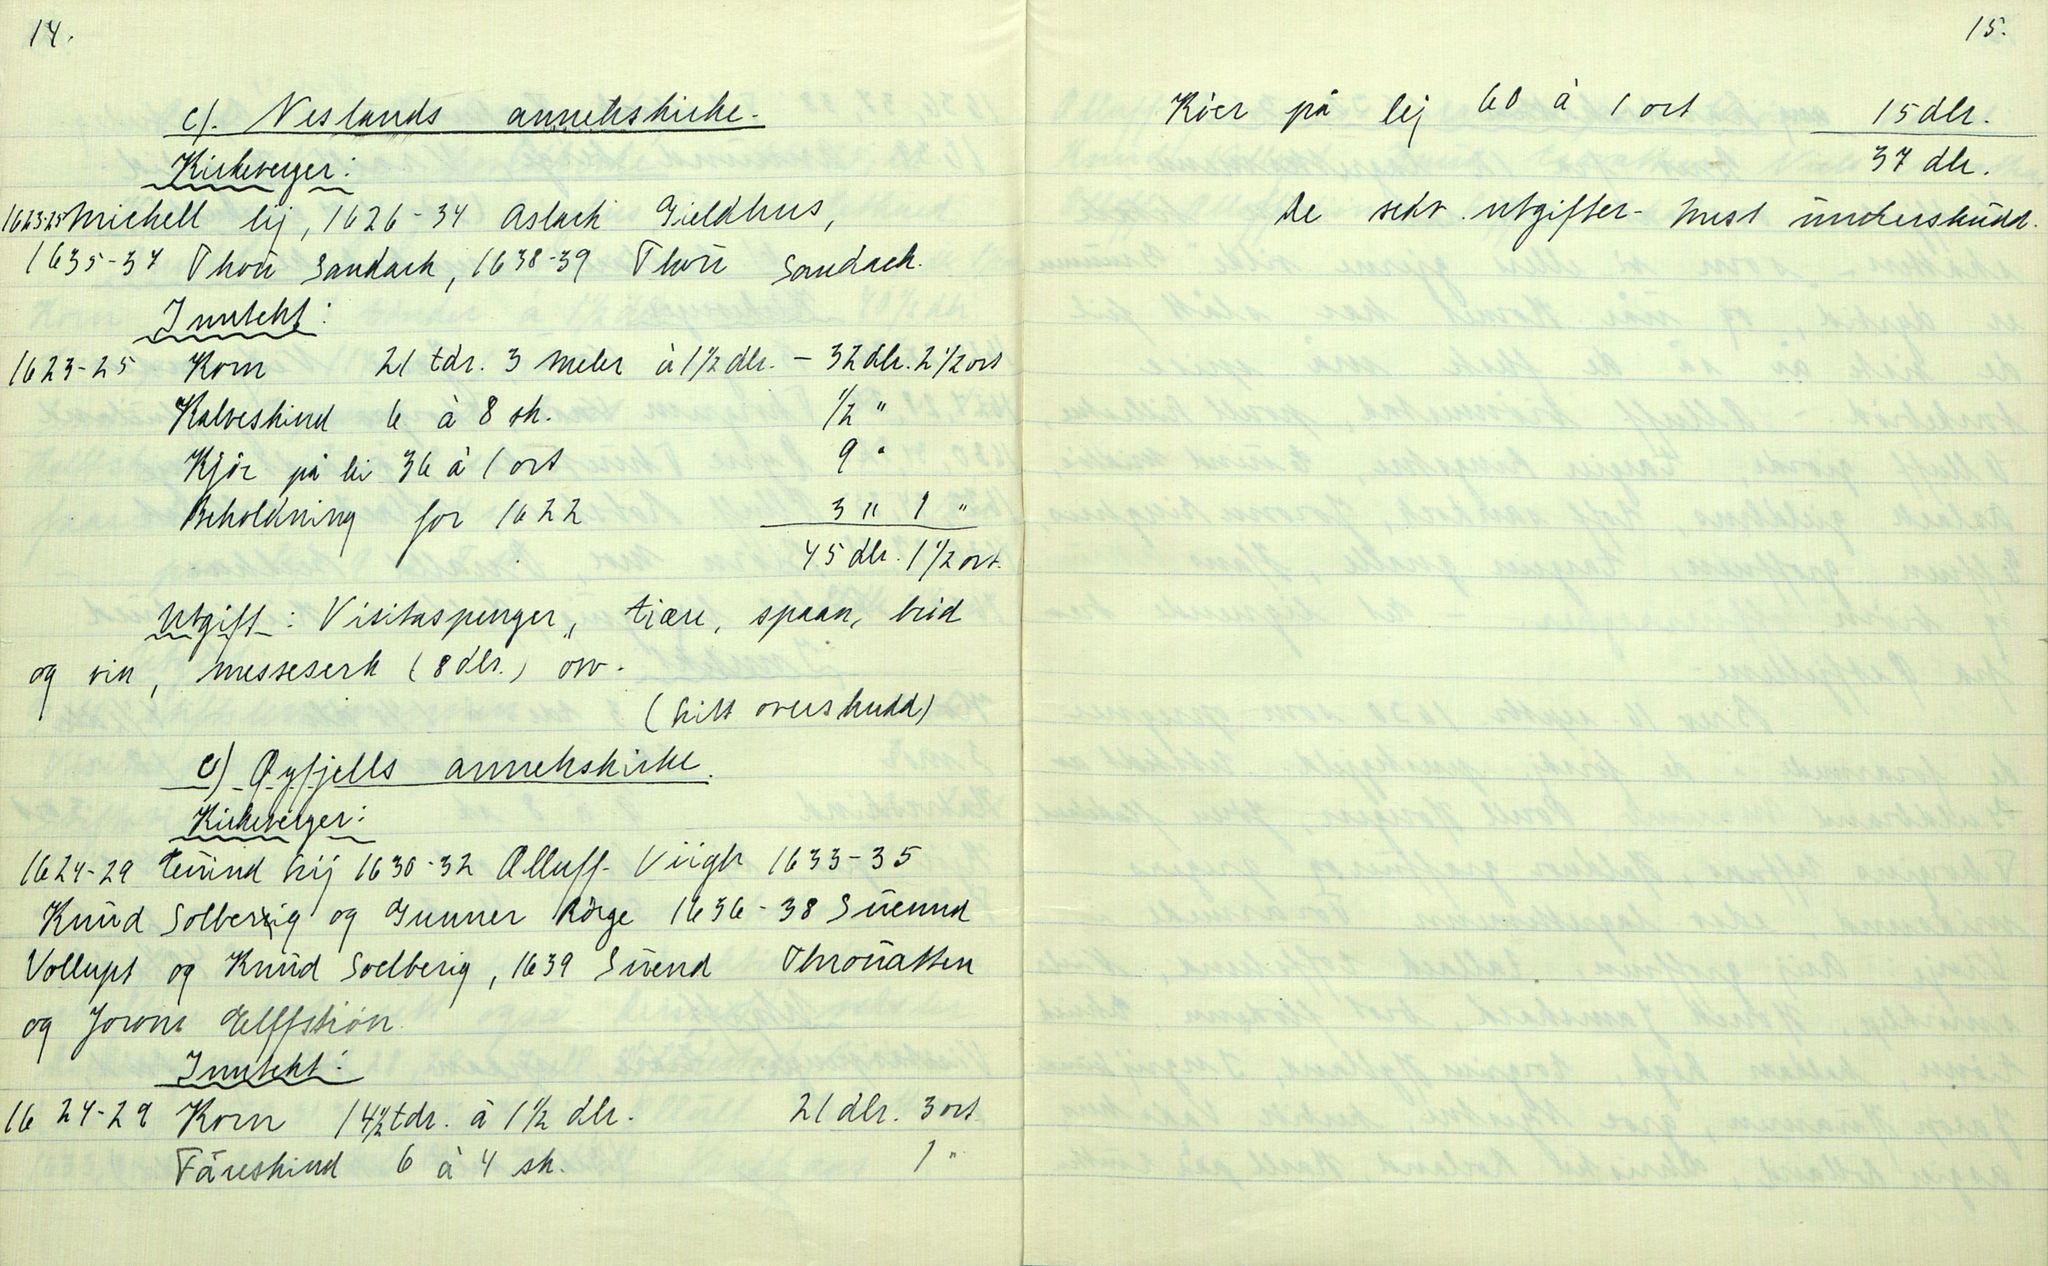 14.
c). Neslands annekskirke.
Kirkeverger:
1623-25 Michell lij, 1626-34 Aslach Gieldhus,
1635-37 Thoŭ Sandack, 1638-39 Thoŭ Sandack.
Inntekt:
1623-25 Korn 21 tdr. 3 meler à 1 1/2 dlr. - 32 dlr. 2 1/2 ort
Kalveskind 6 à 8 sk. 1/2 "
Kjör på lei 36 à 1 ort 9 "
Beholdning for 1622 3 " 1 "
45 dlr. 1 1/2 ort.
Utgift: Visitaspenger, tjære, spaan, brid
og vin, messeserk (8 dlr.) osv.
(litt overskudd)
e) Øyfjells annekskirke.
Kirkeverger:
1624-29 Eŭind lij 1630-32 Olluff Viigh 1633-35
Knŭd Solberig og Gunner Rörge 1636-38 Sŭennd
Vollupt og Knŭd Soelberig, 1639 Sŭend Throŭatten
og Joronn Elffstrøn.
Inntekt:
1624-29 Korn 14 1/2 tdr. à 1 1/2 dlr. 21 dlr. 3 ort
Fåreskind 6 à 4 sk. 1 "
15.
Köer på lej 60 à 1 ort 15 dlr.
37 dlr.
De sedv. utgifter - mest ŭnderskŭdd.